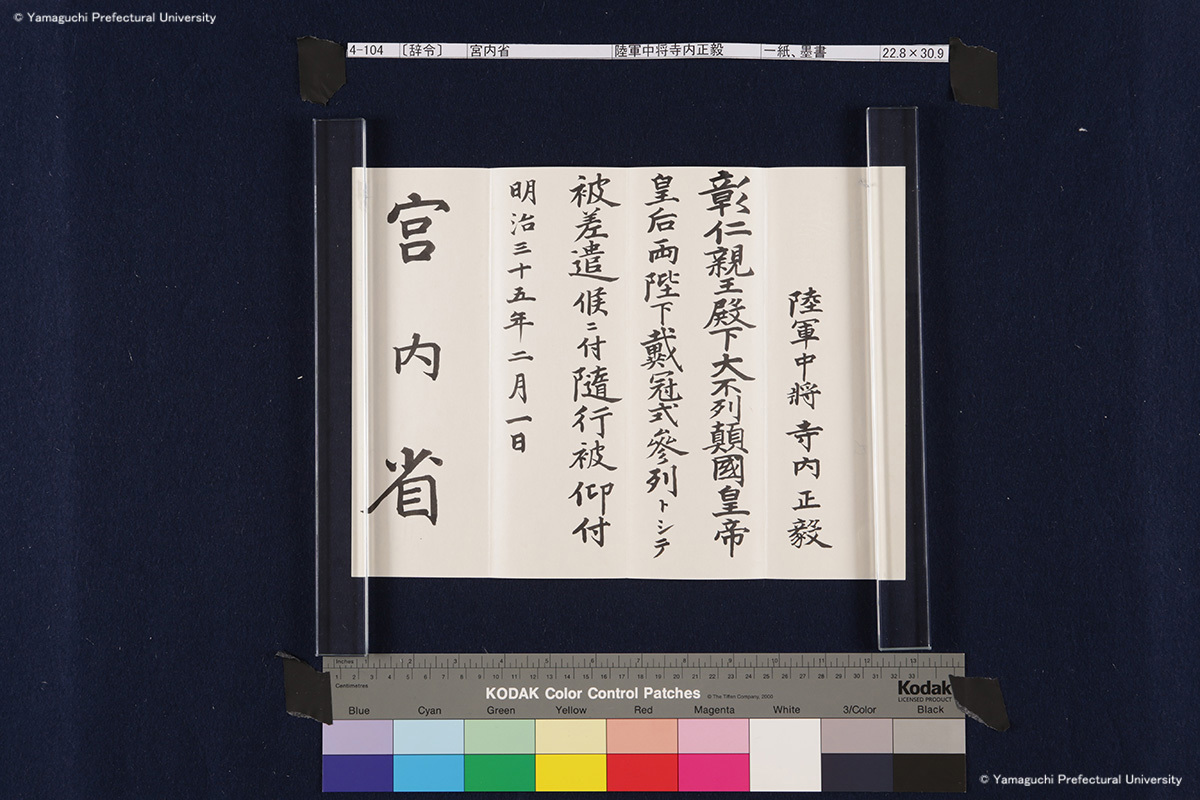 © Yamaguchi Prefectural University
4-104 〔辞令〕 宮内省 陸軍中将寺内正毅 一紙、墨書 22.8×30.9
陸軍中將寺内正毅
彰仁親王殿下大不列顛國皇帝
皇后両陛下戴冠式參列トシテ
被差遣候ニ付隨行被仰付
明治三十五年二月一日
宮内省
Inches 1 2 3 4 5 6 7 8 9 10 11 12 13
1 2 3 4 5 6 7 8 9 10 11 12 13 14 15 16 17 18 19 20 21 22 23 24 25 26 27 28 29 30 31 32 33
Centimetres
KODAK Color Control Patches © The Tiffen Company, 2000
Kodak
LICENSED PRODUCT
Blue Cyan Green Yellow Red Magenta White 3/Color Black
© Yamaguchi Prefectural University